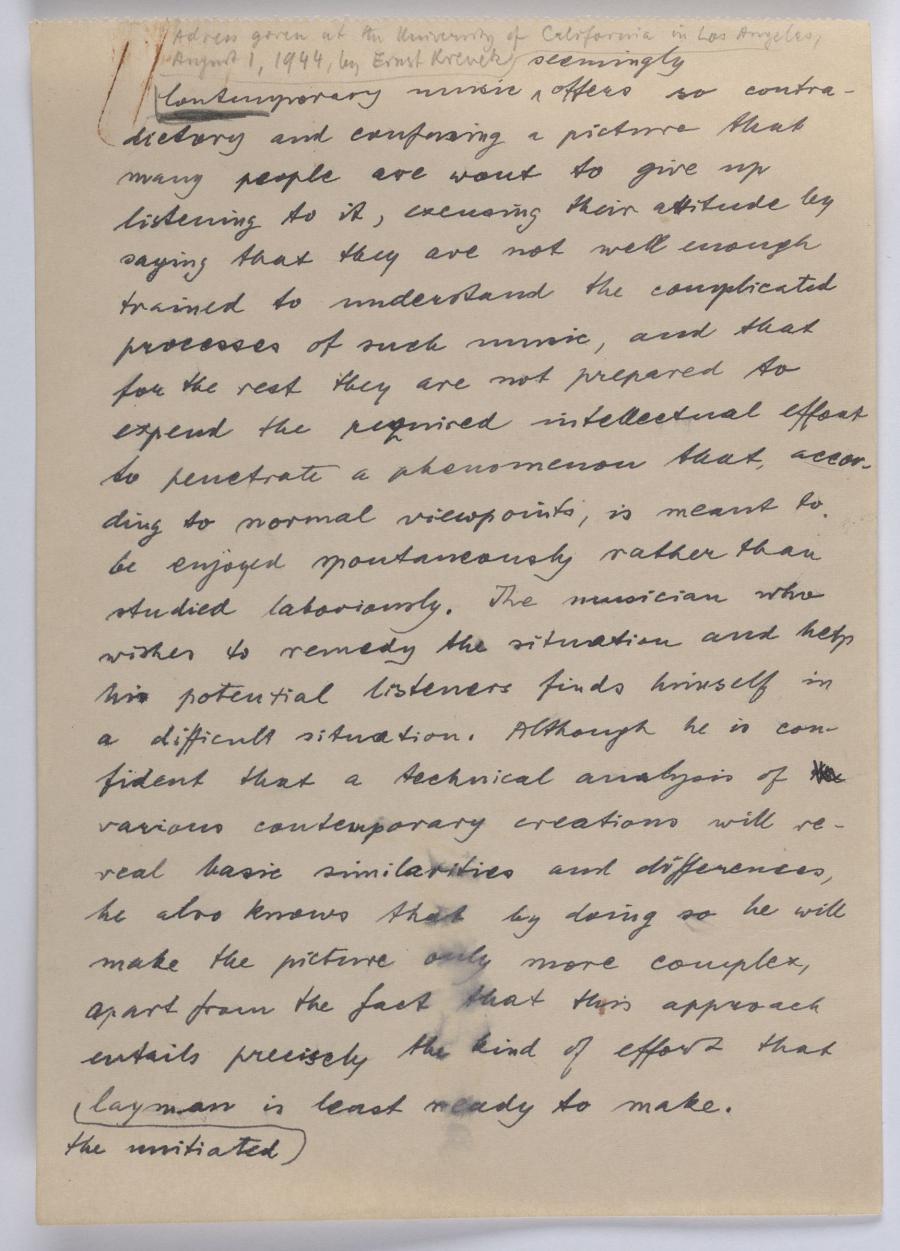 Adress given at the University of California in Los Angeles,
August 1, 1944, by Ernst Krenek)
seemingly
Contemporary music offers so contra-
dictory and confusing a picture that
many people are wont to give up
listening to it, excusing their attitude by
saying that they are not well enough
trained to understand the complicated
processes of such music, and that
for the rest they are not prepared to
expend the required intellectual effort
to penetrate a phenomenon that, accor-
ding to normal viewpoints, is meant to
be enjoyed spontaneously rather than
studied laboriously. The musician who
wishes to remedy the situation and help
his potential listeners finds himself in
a difficult situation. Although he is con-
fident that a technical analysis of
various contemporary creations will re-
veal basic similarities and differences,
he also knows that by doing so he will
make the picture only more complex,
apart from the fact that this approach
entails precisely the kind of effort that
layman is least ready to make.
the unitiated